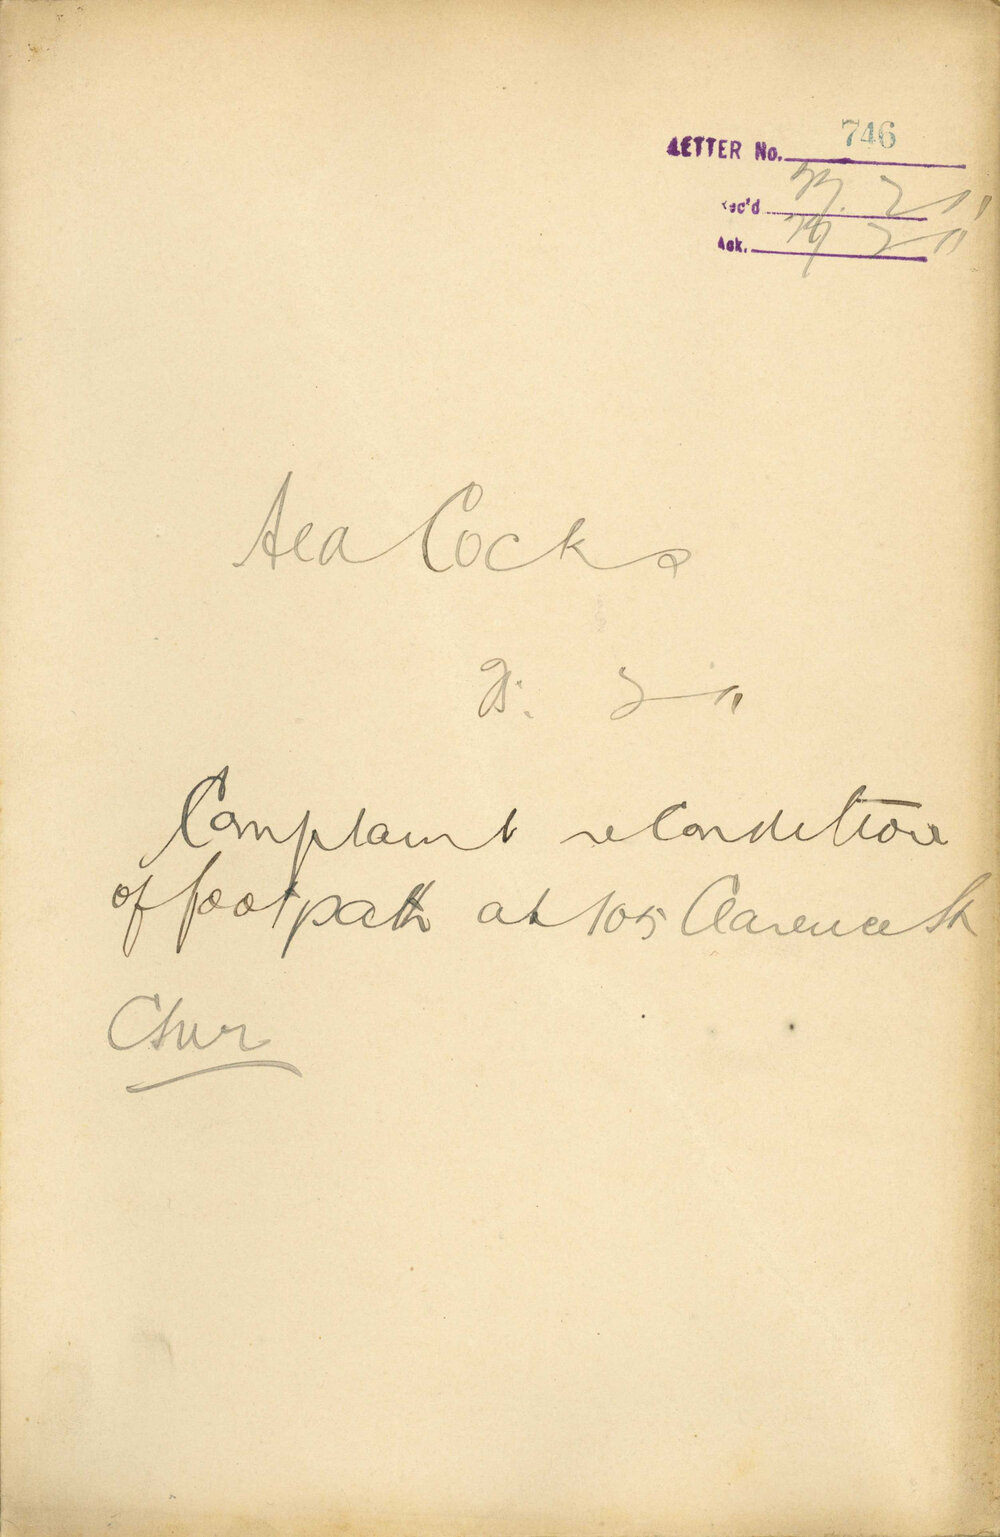 LETTER No. 746
Rec'd 2 11
Ack. 2 11
Cocks
2 11
Complaint re Condition
of footpath at 105 Clarence St